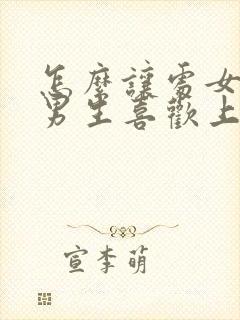 怎麼讓處女
男生喜歡上
宣李萌